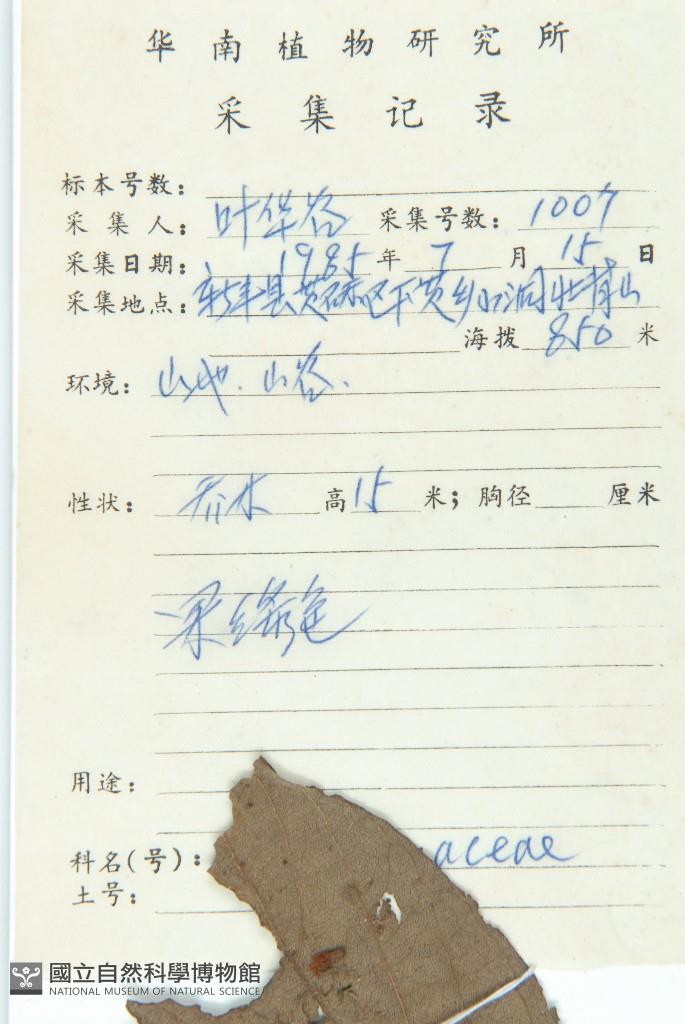 华南植物研究所
采集记录
标本号数：
采集人：叶华谷 采集号数：1007
采集日期：1985年7月15日
采集地点：新丰县黄磜区下黄乡小洞
海拨850米
环境：山地．山谷、
性状：乔木 高15米；胸径 厘米
果绿色
用途：
科名(号)：aceae
土号：
國立自然科學博物館
NATIONAL MUSEUM OF NATURAL SCIENCE